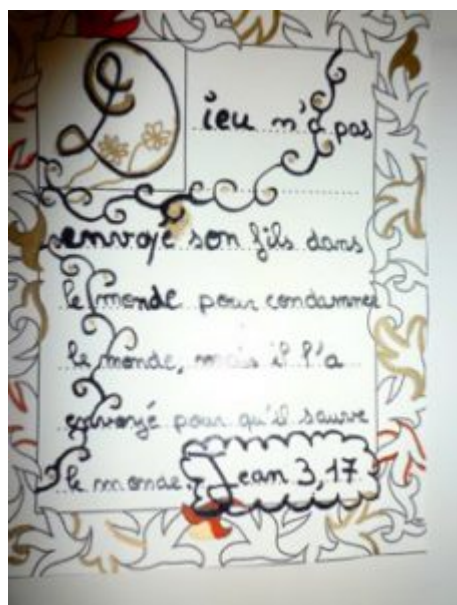 Dieu n'a pas
envoyé son fils dans
le monde pour condamner
le monde, mais il l'a
envoyé pour qu'il sauve
le monde. Jean 3,17